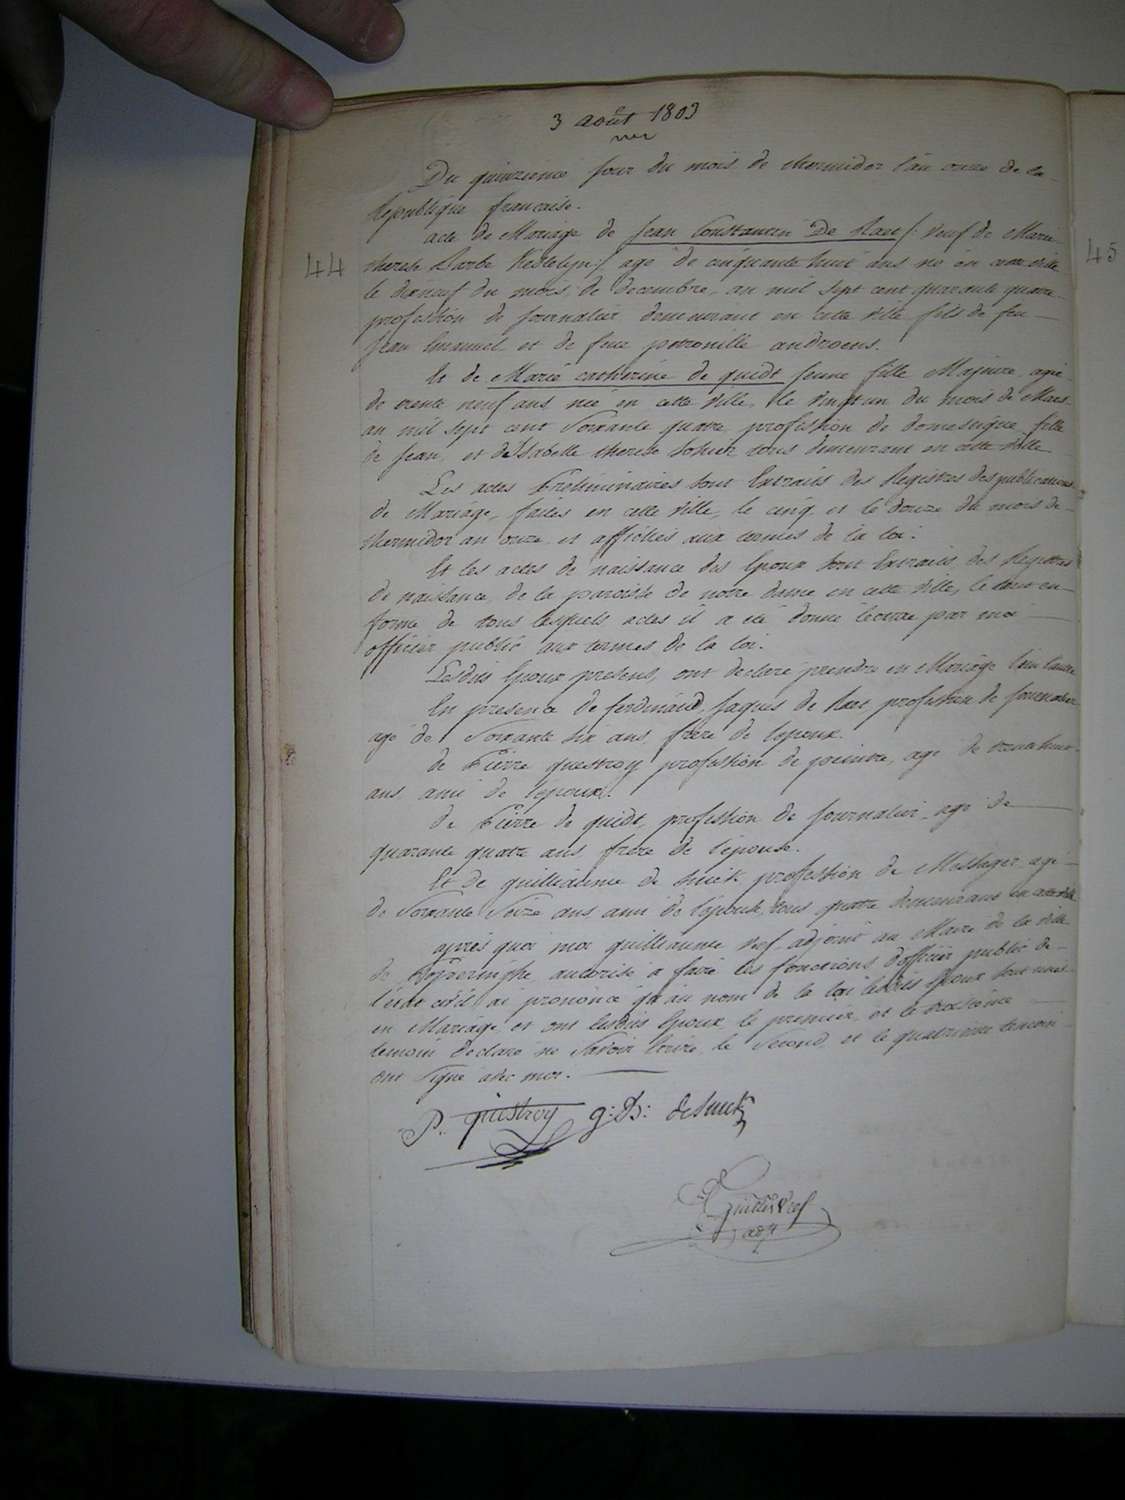 3 août 1803
Du quinzieme jour du mois de thermidor l'an onze de la
République francaise.
44
45
acte de Mariage de Jean Constantin De Rave /: veuf de Marie
therese Barbe Kestelyn :/ agé de cinquante huit ans né en cette ville
le dixneuf du mois de decembre an mil sept cent quarante quatre
profession de Journalier demeurant en cette ville fils de feu
Jean Emanuel et de feue petronille androens.
Et de Marie catherine de quidt jeune fille Majeure, agée
de trente neuf ans née en cette ville, le vingt un du mois de Mars
an mil sept cent Soixante quatre, profession de domestique fille
de Jean, et d'Isabelle therese tous demeurant en cette ville
Les actes Préliminaires sont Extraits des Registres des publications
de Mariage, faites en cette ville, le cinq et le douze du mois de
thermidor an onze, et affichés aux termes de la loi.
Et les actes de naissance des Epoux sont Extraits des Registres
de naissance, de la paroisse de notre dame en cette ville, le tout en
forme de tous lesquels actes il a été donné lecture par moi
officier public aux termes de la loi.
Lesdits Epoux presens, ont declaré prendre en Mariage l'un l'autre
En presence de ferdinand Jaques de Rave profession de Journalier
agé de Soixante six ans, frere de l'epoux.
de Pierre questroy profession de peintre, agé de trente huit
ans ami de l'epoux.
de Pierre de quidt, profession de Journalier agé de
quarante quatre ans frere de l'epouse.
Et de guilliaume de Smet profession de Messager agé
de Soixante Seize ans ami de l'épouse, tous quatre demeurans en cette ville
après quoi moi guilliaume Vef adjoint au Maire de la ville
de Poperinghe, autorisé a faire les fonctions d'officier public de
l'état civil ai prononcé qu'au nom de la loi lesdits Epoux sont unis
en Mariage et ont lesdits Epoux le premier et le troisième
temoin declaré ne Savoir Ecrire, le Second et le quatrieme temoin
ont Signé avec moi.
P. questroy g: D:
adjt